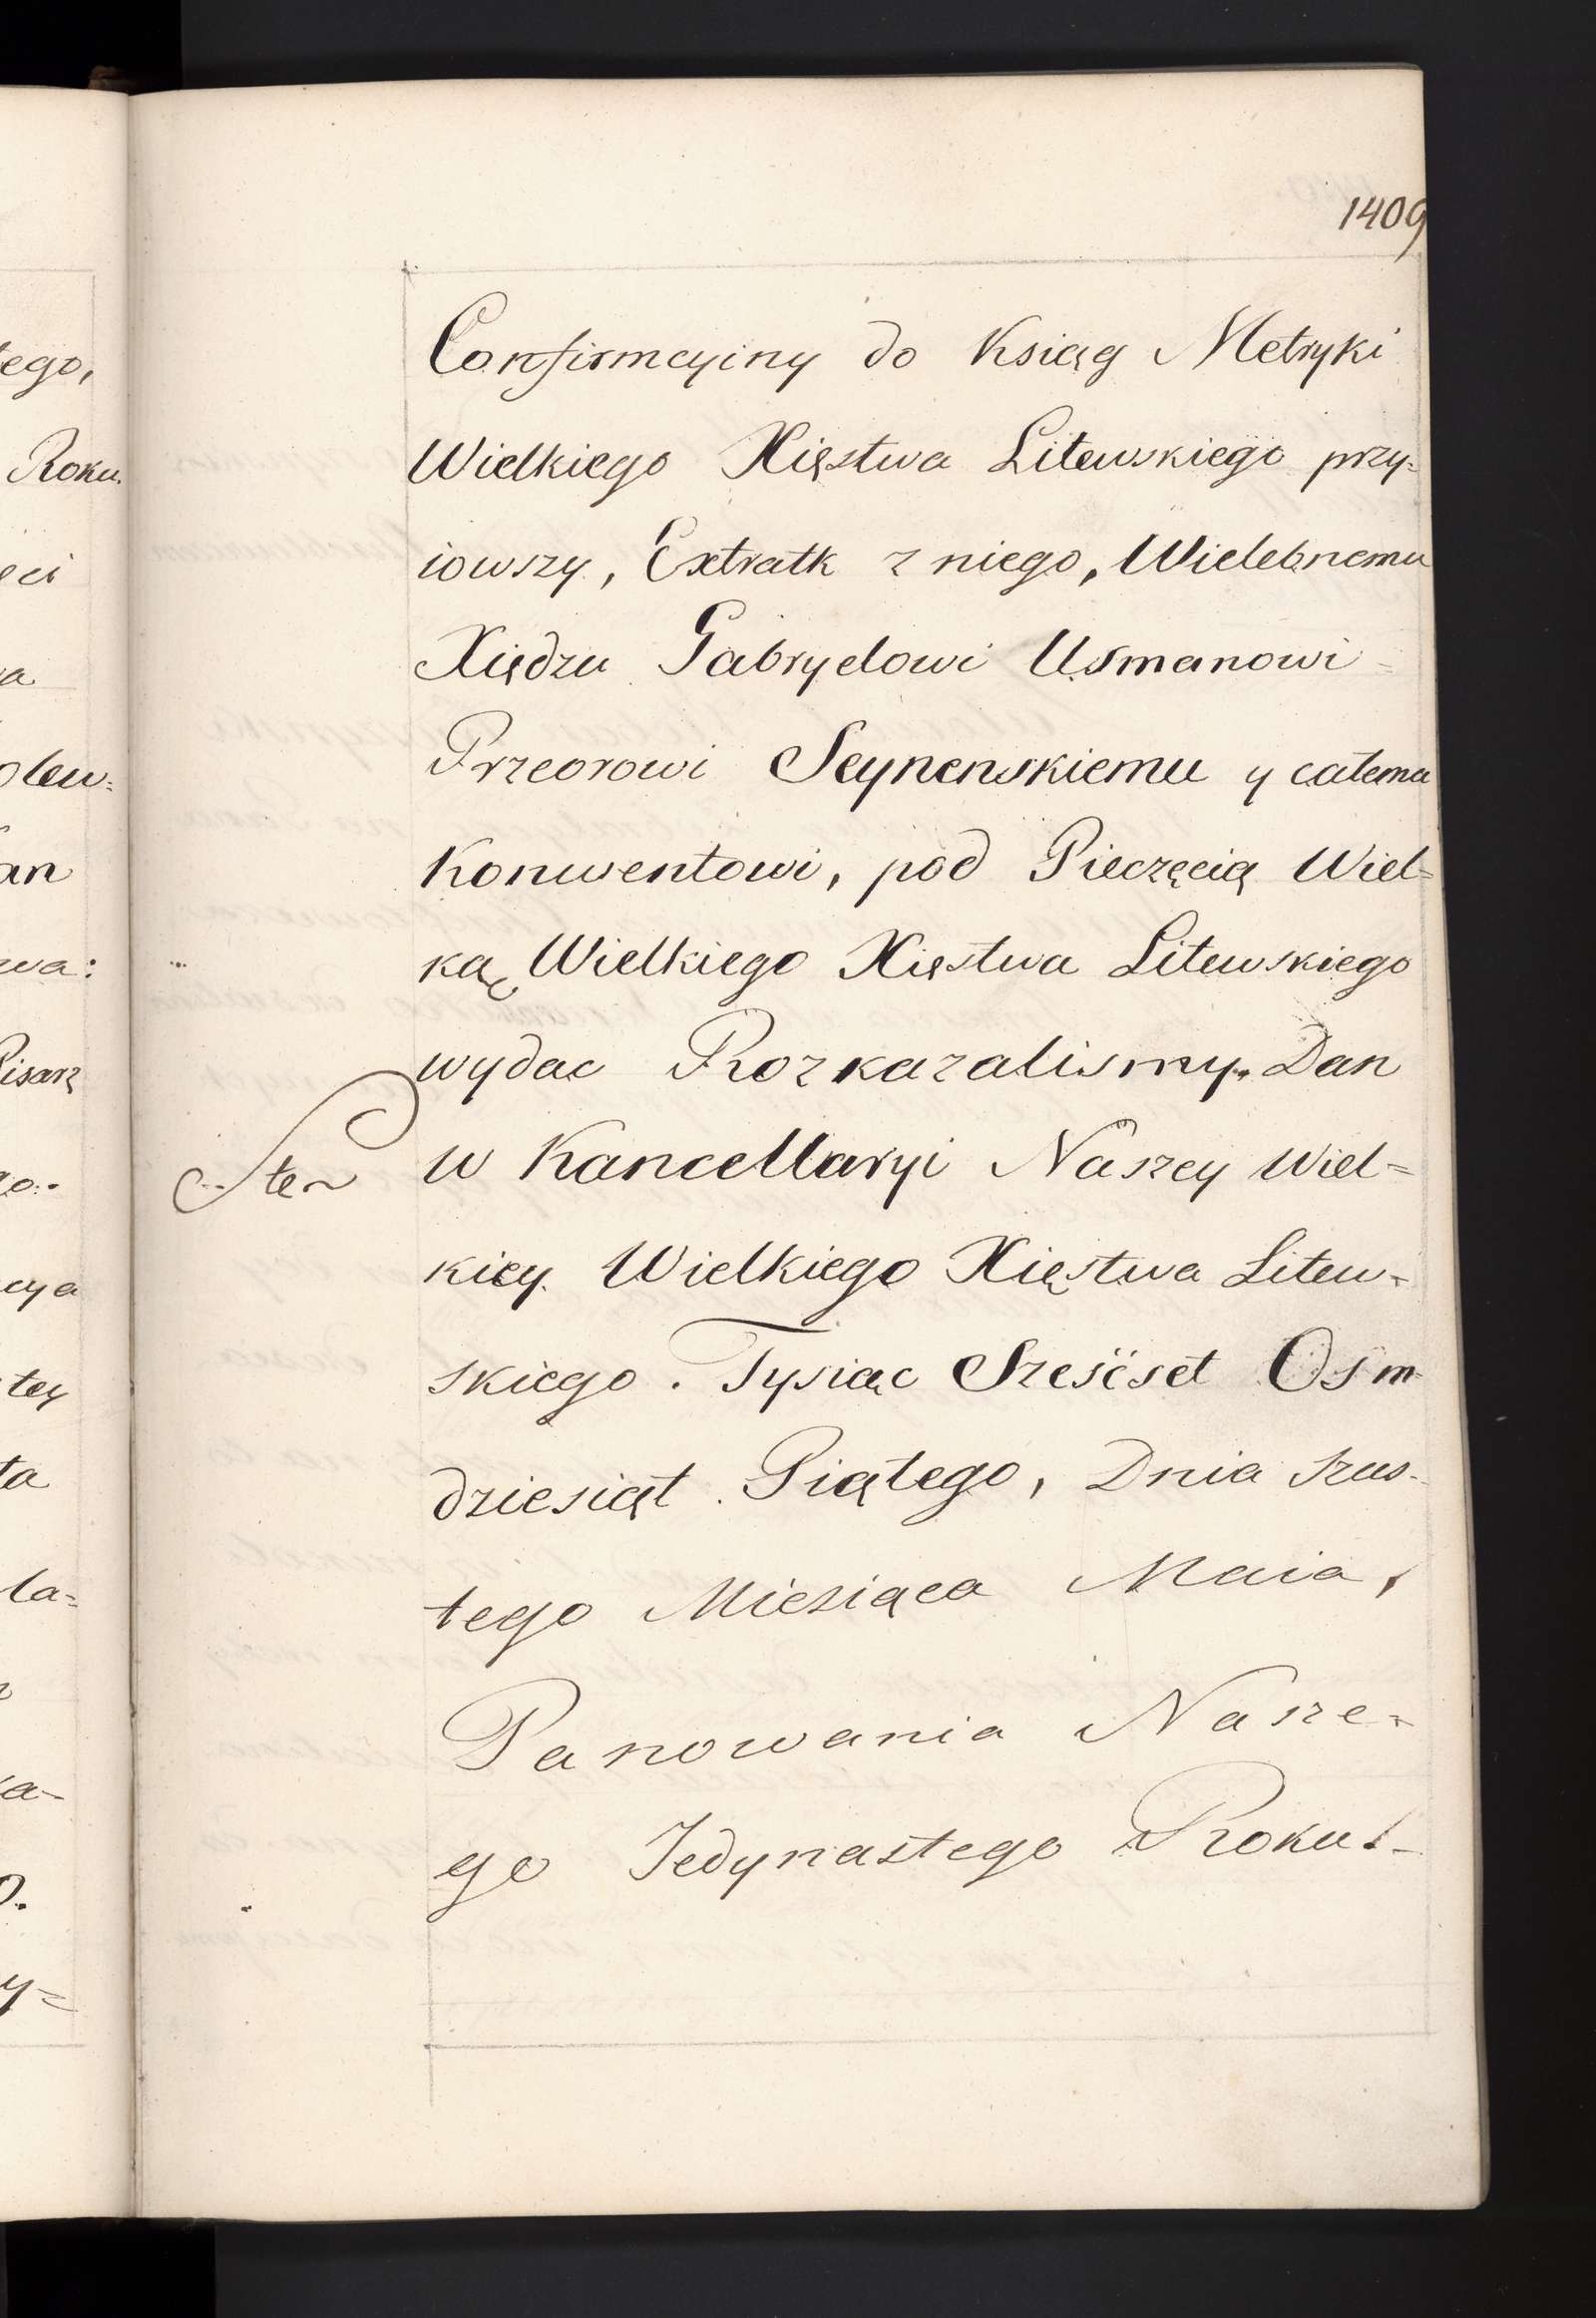 1409
Confirmcyiny do Ksiąg Metryki
Wielkiego Xięstwa Litewskiego przy=
iowszy, Extratk z niego, Wielebnemu
Xiędzu Gabryelowi Usmanowi
Przeorowi Seynenskiemu y całemu
Konwentowi, pod Pieczęcią Wiel=
ką Wielkiego Xięstwa Litewskiego
wydac Rozkazalismy. Dan
w Kancellaryi Naszey Wiel=
kiey Wielkiego Xięstwa Litew-
skiego. Tysiąc Sześćset Osm-
dziesiąt Piątego, Dnia Szus-
tego Miesiąca Maia,
Panowania Nasze-
go Jedynastego Roku.-
tego,
Roku.
eci
olew=
an
wa:
Pisarz
cya
tey
ta
la=
a-
o.
y=